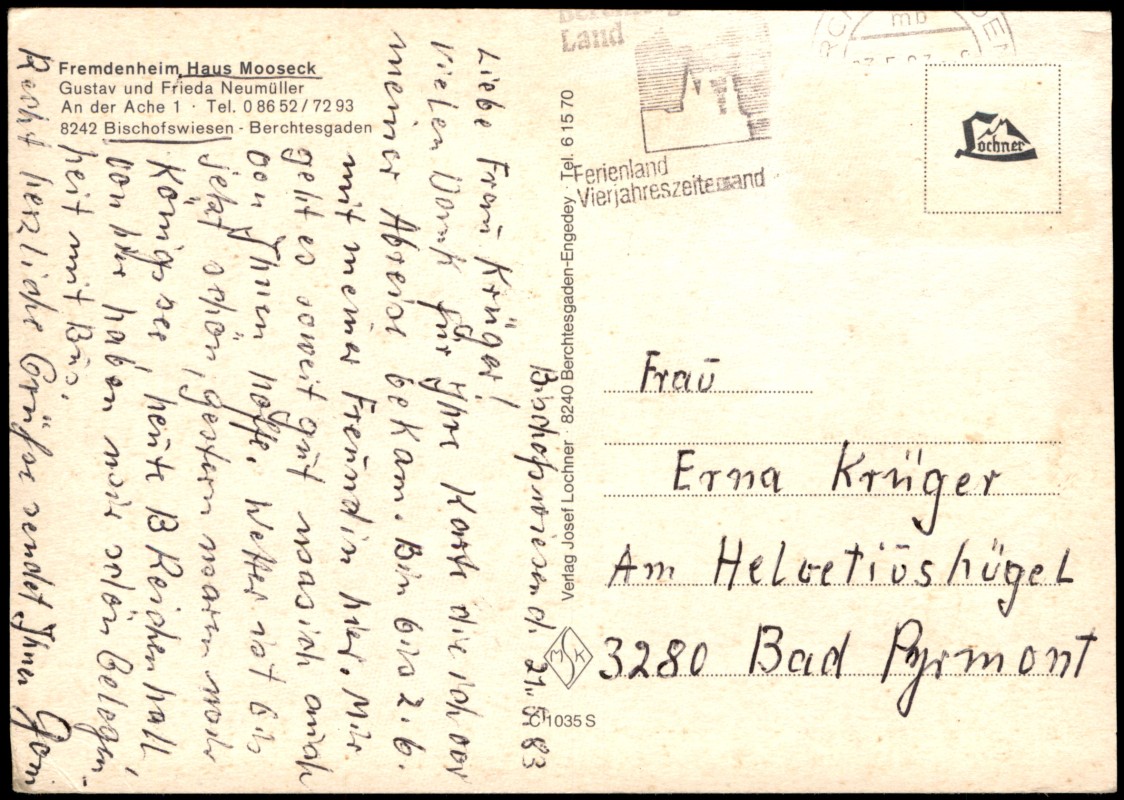 Fremdenheim Haus Mooseck
Gustav und Frieda Neumüller
An der Ache 1 · Tel. 0 86 52 / 72 93
8242 Bischofswiesen - Berchtesgaden
Bischofswiesen d. 21.5.83
Liebe Frau Krüger!
Vielen Dank für Ihre Karte die ich vor
meiner Abreise bekam. Bin bis 2.6.
mit meiner Freundin hier. Mir
geht es soweit gut was ich auch
von Ihnen hoffe. Wetter ist bis
jetzt schön, gestern waren wir
Königssee, heute B Reichenhall,
von hir haben wir schön Gelegen-
heit mit Bus.
Recht herzliche Grüße sendet Ihnen
Verlag Josef Lochner · 8240 Berchtesgaden-Engedey · Tel. 6 15 70
MSK
C 1035 S
Land
Ferienland
Vierjahreszeitenland
mb
Lochner
Frau
Erna Krüger
Am Helvetiushügel
3280 Bad Pyrmont